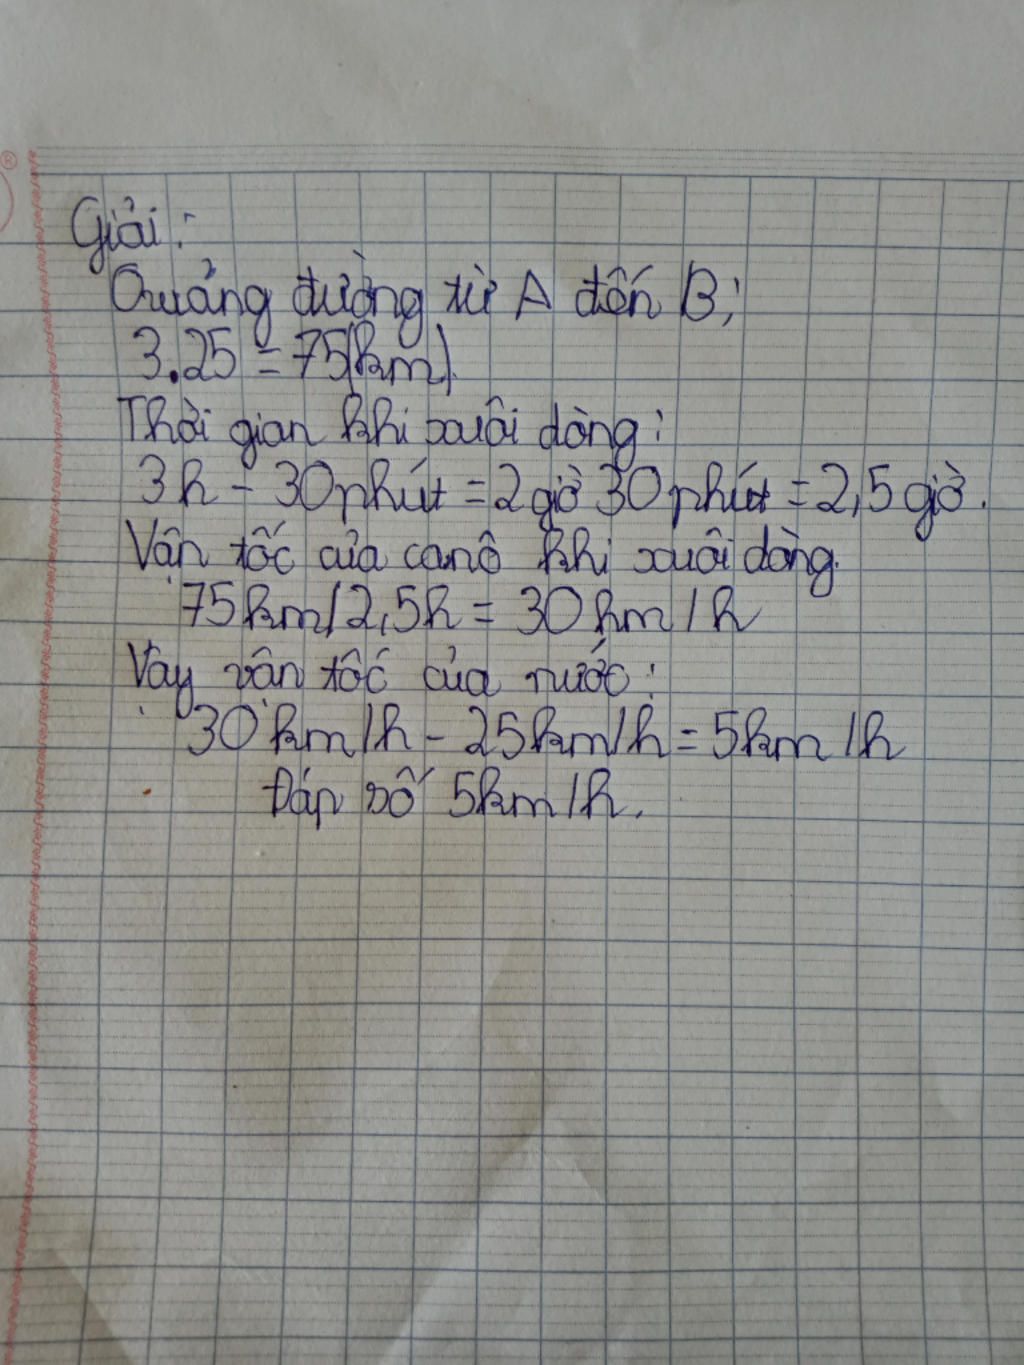 Giải:
Quảng đường từ A đến B;
3.25 = 75(km).
Thời gian khi xuôi dòng:
3h - 30phút = 2giờ 30phút = 2,5giờ.
Vận tốc của canô khi xuôi dòng.
75km/2,5h = 30km/h
Vậy vận tốc của nước:
30km/h - 25km/h = 5km/h
Đáp số 5km/h.